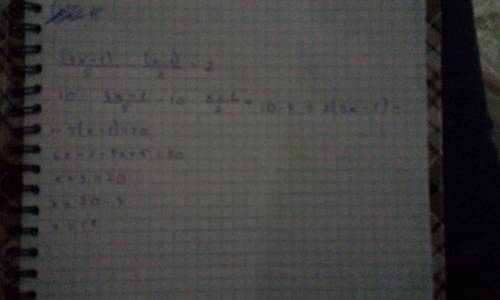 (3x-1)/5 - (x-1)/2 = 2
10 · (3x-1)/5 - 10 · (x-1)/2 = 10 · 2 = 2(3x-1) -
- 5(x-1) = 20
6x-2-5x+5=20
x+3=20
x=20-3
x=17